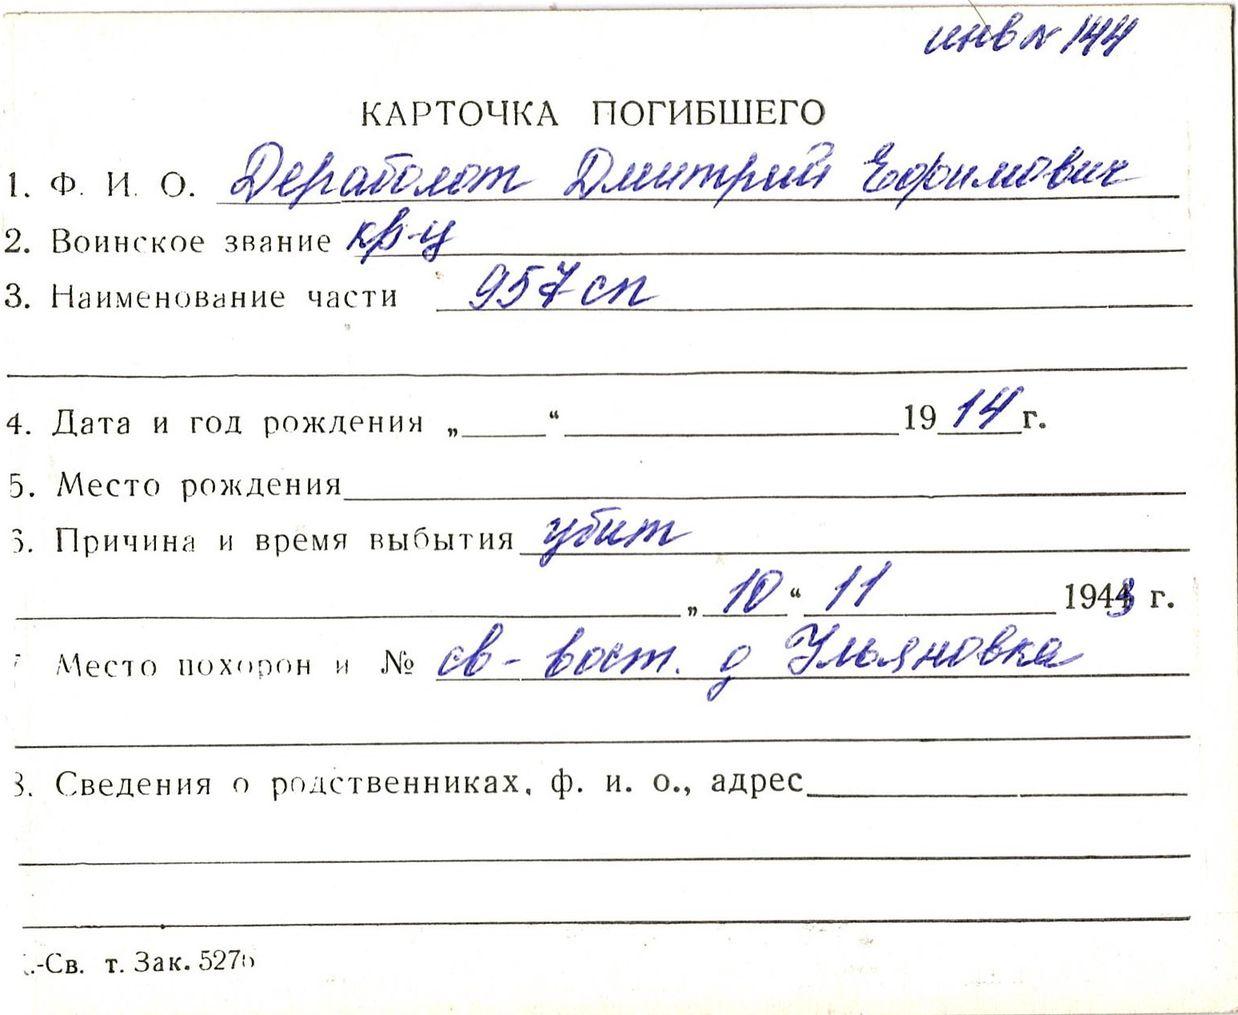 инв № 144
КАРТОЧКА ПОГИБШЕГО
1. Ф. И. О. Дераболот Дмитрий Ефимович
2. Воинское звание кр-ц
3. Наименование части 957 сп
4. Дата и год рождения „ “ 1914 г.
5. Место рождения
6. Причина и время выбытия убит
„ 10 “ 11 1943 г.
Место похорон и № св-вост. д Ульяновка
8. Сведения о родственниках, ф. и. о., адрес
-Св. т. Зак. 5276